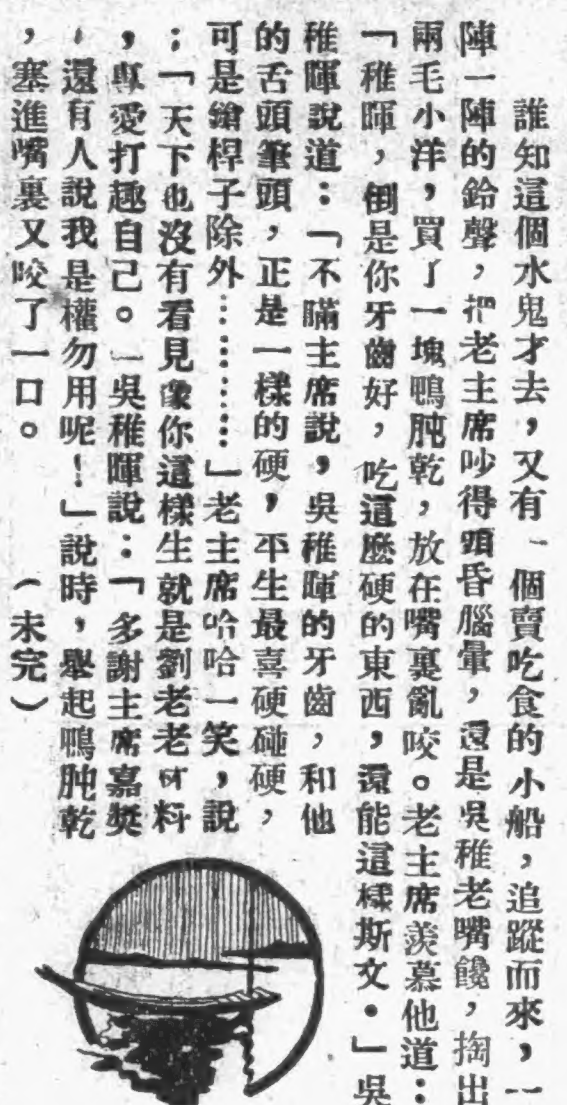 誰知這個水鬼才去，又有一個賣吃食的小船，追蹤而來，一
陣一陣的鈴聲，把老主席吵得頭昏腦暈，還是吳稚老嘴饞，掏出
兩毛小洋，買了一塊鴨肫乾，放在嘴裏亂咬。老主席羨慕他道：
「稚暉，倒是你牙齒好，吃這麼硬的東西，還能這樣斯文。」吳
稚暉說道：「不瞞主席說，吳稚暉的牙齒，和他
的舌頭筆頭，正是一樣的硬，平生最喜硬碰硬，
可是鎗桿子除外…………」老主席哈哈一笑，說
：「天下也沒有看見像你這樣生就是劉老老材料
，專愛打趣自己。」吳稚暉說：「多謝主席嘉獎
，還有人說我是權勿用呢！」說時，舉起鴨肫乾
，塞進嘴裏又咬了一口。　　（未完）